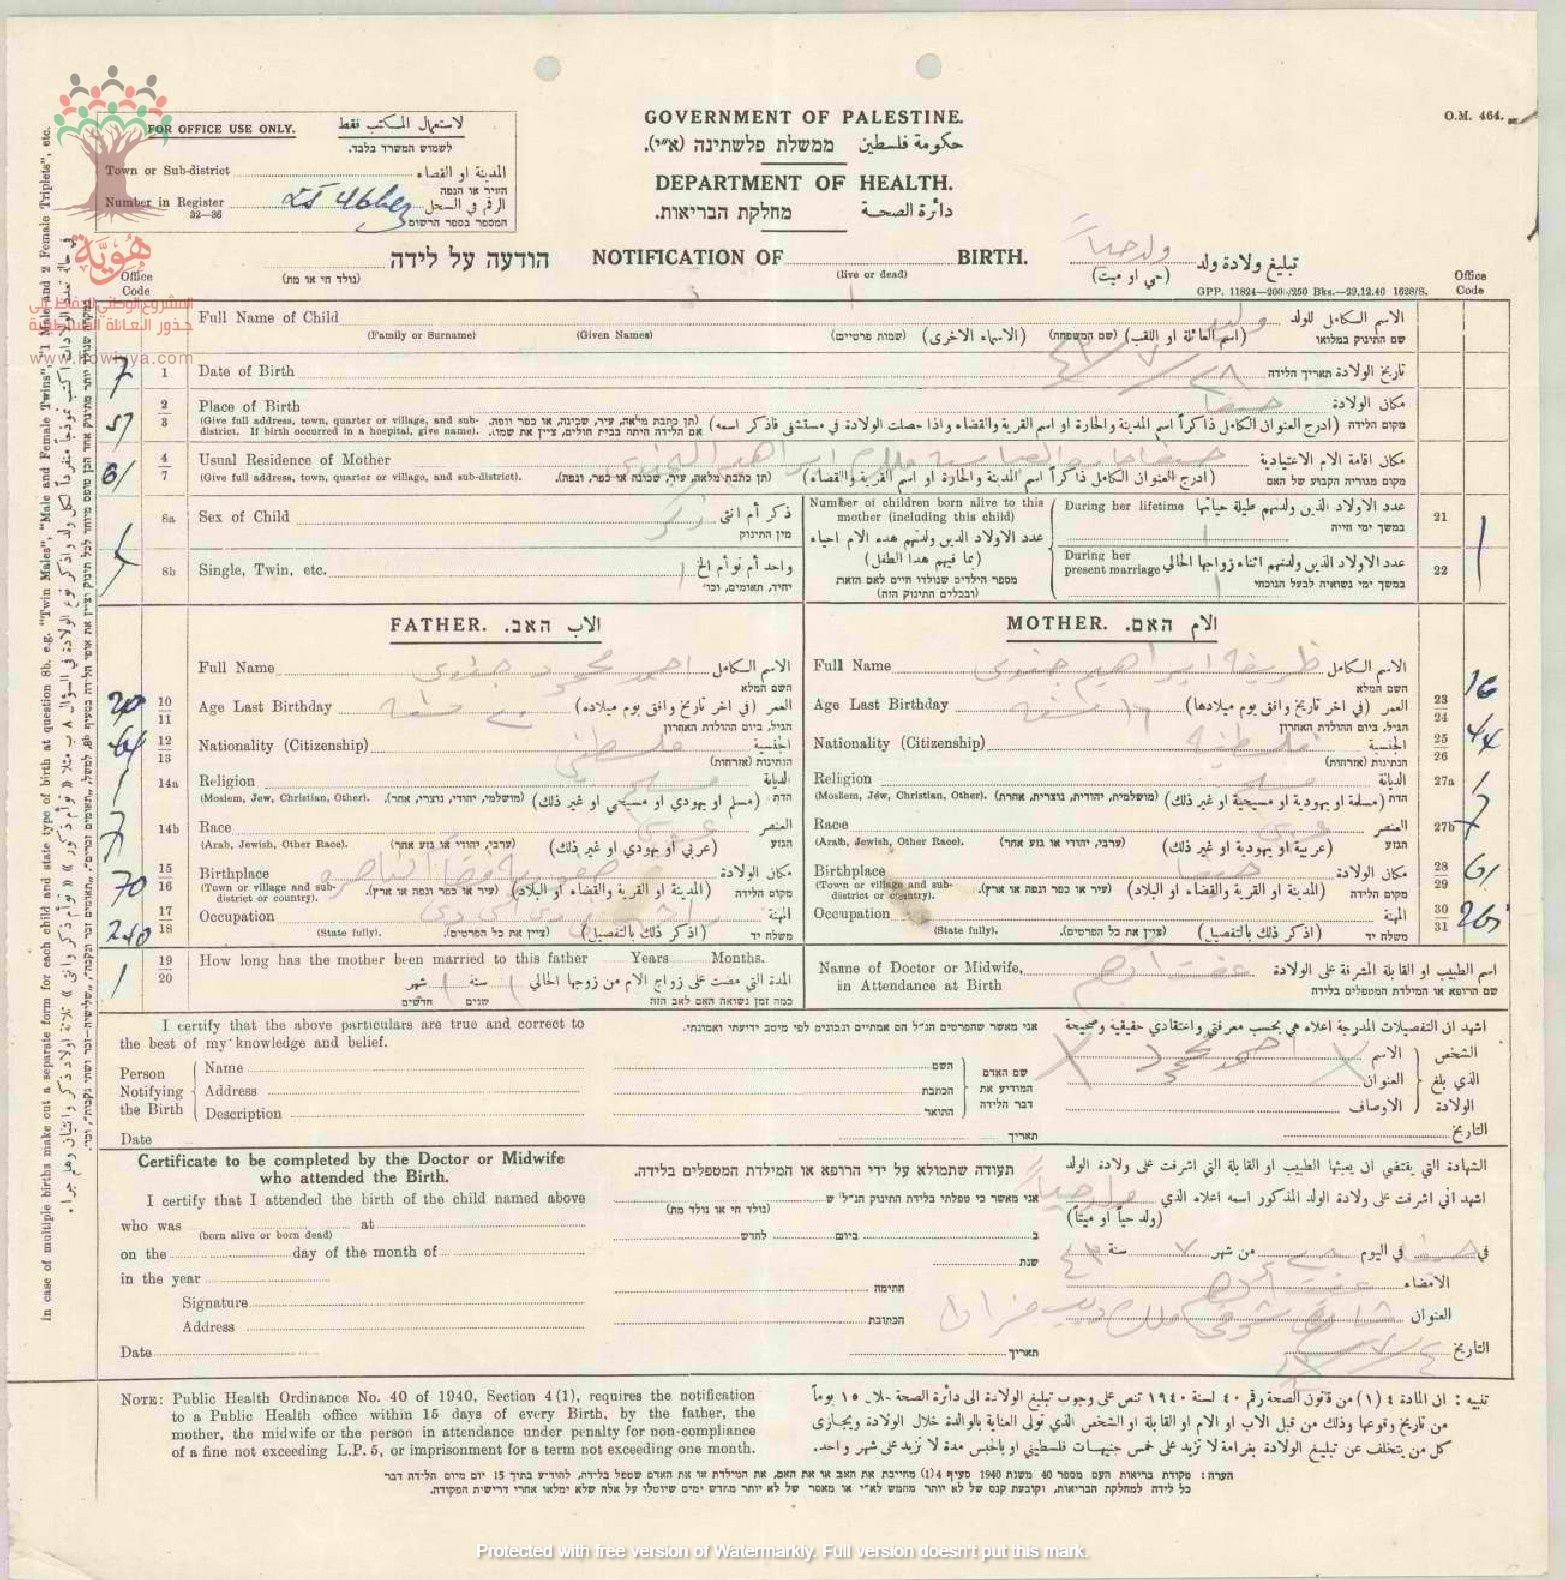 O.M. 464.
FOR OFFICE USE ONLY. لاستعمال المكتب نقط
לשמוש המשרד בלבד.
Town or Sub-district المدينة او القضاء
העיר או הנפה
Number in Register الرقم في السجل
32—36 המספר בספר הרשום
GOVERNMENT OF PALESTINE.
حكومة فلسطين ממשלת פלשתינה (א״י).
DEPARTMENT OF HEALTH.
دائرة الصحة מחלקת הבריאות.
הודעה על לידה NOTIFICATION OF BIRTH. تبليغ ولادة ولد ولد حياً
(נולד חי או מת) (live or dead) (حي او ميت)
GPP. 11824—200/250 Bks.—29.12.40 1628/S.
Office Code
Office Code
هُويَّة
المشروع الوطني للحفاظ على
جذور العائلة الفلسطينية
www.howiyya.com
Full Name of Child الاسم الكامل للولد وليد
(Family or Surname) (Given Names) (שמות פרטיים) (الاسماء الاخرى) (שם המשפחה) (اسم العائلة او اللقب) שם התינוק במלואו
7 1 Date of Birth ٢٨/٧/٤٣ تاريخ الولادة תאריך הלידה
2 3 Place of Birth حيفا مكان الولادة
(Give full address, town, quarter or village, and sub-district. If birth occurred in a hospital, give name). (תן כתבת מלאה, עיר, שכונה, או כפר ונפה. אם הלידה היתה בבית חולים, ציין את שמו). (ادرج العنوان الكامل ذاكراً اسم المدينة والحارة او اسم القرية والقضاء واذا حصلت الولادة في مستشفى فاذكر اسمه) מקום הלידה
61 4 7 Usual Residence of Mother مكان اقامة الام الاعتيادية
(Give full address, town, quarter or village, and sub-district). (תן כתבת מלאה, עיר, שכונה או כפר, ונפה). (ادرج العنوان الكامل ذاكراً اسم المدينة والحارة او اسم القرية والقضاء) מקום מגוריה הקבוע של האם
8a Sex of Child ذكر ذكر أم انثى
מין התינוק
8b Single, Twin, etc. ١ واحد أم توأم الخ
יחיד, תאומים, וכו׳
Number of children born alive to this mother (including this child)
عدد الاولاد الذين ولدتهم هذه الام احياء
(بما فيهم هذا الطفل)
מספר הילדים שנולדו חיים לאם הזאת
(ובכללם התינוק הזה)
During her lifetime عدد الاولاد الذين ولدتهم طيلة حياتها 21
במשך ימי חייה
During her present marriage عدد الاولاد الذين ولدتهم اثناء زواجها الحالي 22
במשך ימי נשואיה לבעל הנוכחי
FATHER. האב. الاب
Full Name احمد محمود جندوي الاسم الكامل
השם המלא
20 10 11 Age Last Birthday ٢٠ سنه العمر (في اخر تاريخ وافق يوم ميلاده)
הגיל, ביום ההולדת האחרון
44 12 13 Nationality (Citizenship) فلسطيني الجنسية
הנתינות (אזרחות)
1 14a Religion مسلم الديانة
(Moslem, Jew, Christian, Other). (מושלמי, יהודי, נוצרי, אחר). (مسلم او يهودي او مسيحي او غير ذلك) הדת
14b Race عربي العنصر
(Arab, Jewish, Other Race). (ערבי, יהודי או גזע אחר) (عربي او يهودي او غير ذلك) הגזע
70 15 16 Birthplace صفورية قضا الناصره مكان الولادة
(Town or village and sub-district or country). (עיר או כפר ונפה או ארץ). (المدينة او القرية والقضاء او البلاد) מקום הלידה
240 17 18 Occupation المهنة
(State fully). (ציין את כל הפרטים). (اذكر ذلك بالتفصيل) משלח יד
MOTHER. האם. الام
Full Name ظريفه ابراهيم جندوي الاسم الكامل
השם המלא
Age Last Birthday ١٦ سنه العمر (في اخر تاريخ وافق يوم ميلادها) 23 24 16
הגיל, ביום ההולדת האחרון
Nationality (Citizenship) فلسطينيه الجنسية 25 26 44
הנתינות (אזרחות)
Religion الديانة 27a 1
(Moslem, Jew, Christian, Other). (מושלמית, יהודית, נוצרית, אחרת). (مسلمة او يهودية او مسيحية او غير ذلك) הדת
Race عربي العنصر 27b
(Arab, Jewish, Other Race). (ערבי, יהודי או גזע אחר) (عربية او يهودية او غير ذلك) הגזע
Birthplace حيفا مكان الولادة 28 29 61
(Town or village and sub-district or country). (עיר או כפר ונפה או ארץ). (المدينة او القرية والقضاء او البلاد) מקום הלידה
Occupation المهنة 30 31
(State fully). (ציין את כל הפרטים). (اذكر ذلك بالتفصيل) משלח יד
1 19 20 How long has the mother been married to this father Years Months.
المدة التي مضت على زواج الام من زوجها الحالي ١ سنة ١ شهر
כמה זמן נשואה האם לאב הזה שנים חדשים
Name of Doctor or Midwife, in Attendance at Birth اسم الطبيب او القابلة المشرفة على الولادة
שם הרופא או המילדת המטפלים בלידה
I certify that the above particulars are true and correct to the best of my knowledge and belief.
אני מאשר שהפרטים הנ״ל הם אמתיים ונכונים לפי מיטב ידיעתי ואמונתי.
اشهد ان التفصيلات المدرجة اعلاه هي بحسب معرفتي واعتقادي حقيقية وصحيحة
Person Notifying the Birth
Name השם
Address הכתבת
Description התואר
שם האדם המודיע את דבר הלידה
الشخص الذي بلغ الولادة
الاسم احمد محمود
العنوان
الاوصاف
Date תאריך التاريخ
Certificate to be completed by the Doctor or Midwife who attended the Birth.
תעודה שתמולא על ידי הרופא או המילדת המטפלים בלידה.
الشهادة التي يقتضي ان يعبئها الطبيب او القابلة التي اشرفت على ولادة الولد
I certify that I attended the birth of the child named above
who was at
(born alive or born dead)
on the day of the month of
in the year
Signature
Address
Date
אני מאשר כי טפלתי בלידת התינוק הנ״ל ש
(נולד חי או נולד מת)
ב ביום לחדש
שנת
חתימה
הכתובת
תאריך
اشهد اني اشرفت على ولادة الولد المذكور اسمه اعلاه الذي ولد حياً
(ولد حياً او ميتاً)
في حيفا في اليوم من شهر ٧ سنة ٤٣
الامضاء
العنوان
التاريخ
NOTE: Public Health Ordinance No. 40 of 1940, Section 4(1), requires the notification
to a Public Health office within 15 days of every Birth, by the father, the
mother, the midwife or the person in attendance under penalty for non-compliance
of a fine not exceeding L.P. 5, or imprisonment for a term not exceeding one month.
تنبيه : ان المادة ٤ (١) من قانون الصحة رقم ٤٠ لسنة ١٩٤٠ تنص على وجوب تبليغ الولادة الى دائرة الصحة خلال ١٥ يوماً
من تاريخ وقوعها وذلك من قبل الاب او الام او القابلة او الشخص الذي تولى العناية بالوالدة خلال الولادة ويجازى
كل من يتخلف عن تبليغ الولادة بغرامة لا تزيد على خمس جنيهات فلسطيني او بالحبس مدة لا تزيد على شهر واحد.
הערה: פקודת בריאות העם מספר 40 משנת 1940 סעיף 4(1) מחייבת את האב או את האם, את המילדת או את האדם שטפל בלידה, להודיע בתוך 15 יום מיום הלידה דבר
כל לידה למחלקת הבריאות, וקובעת קנס של לא יותר מחמש לא״י או מאסר של לא יותר מחדש ימים שיוטלו על אלה שלא ימלאו אחרי דרישות הפקודה.
In case of multiple births make out a separate form for each child and state type of birth at question 8b. e.g. "Twin Males", "Male and Female Twins", "1 Male and 2 Female Triplets", etc.
Protected with free version of Watermarkly. Full version doesn't put this mark.